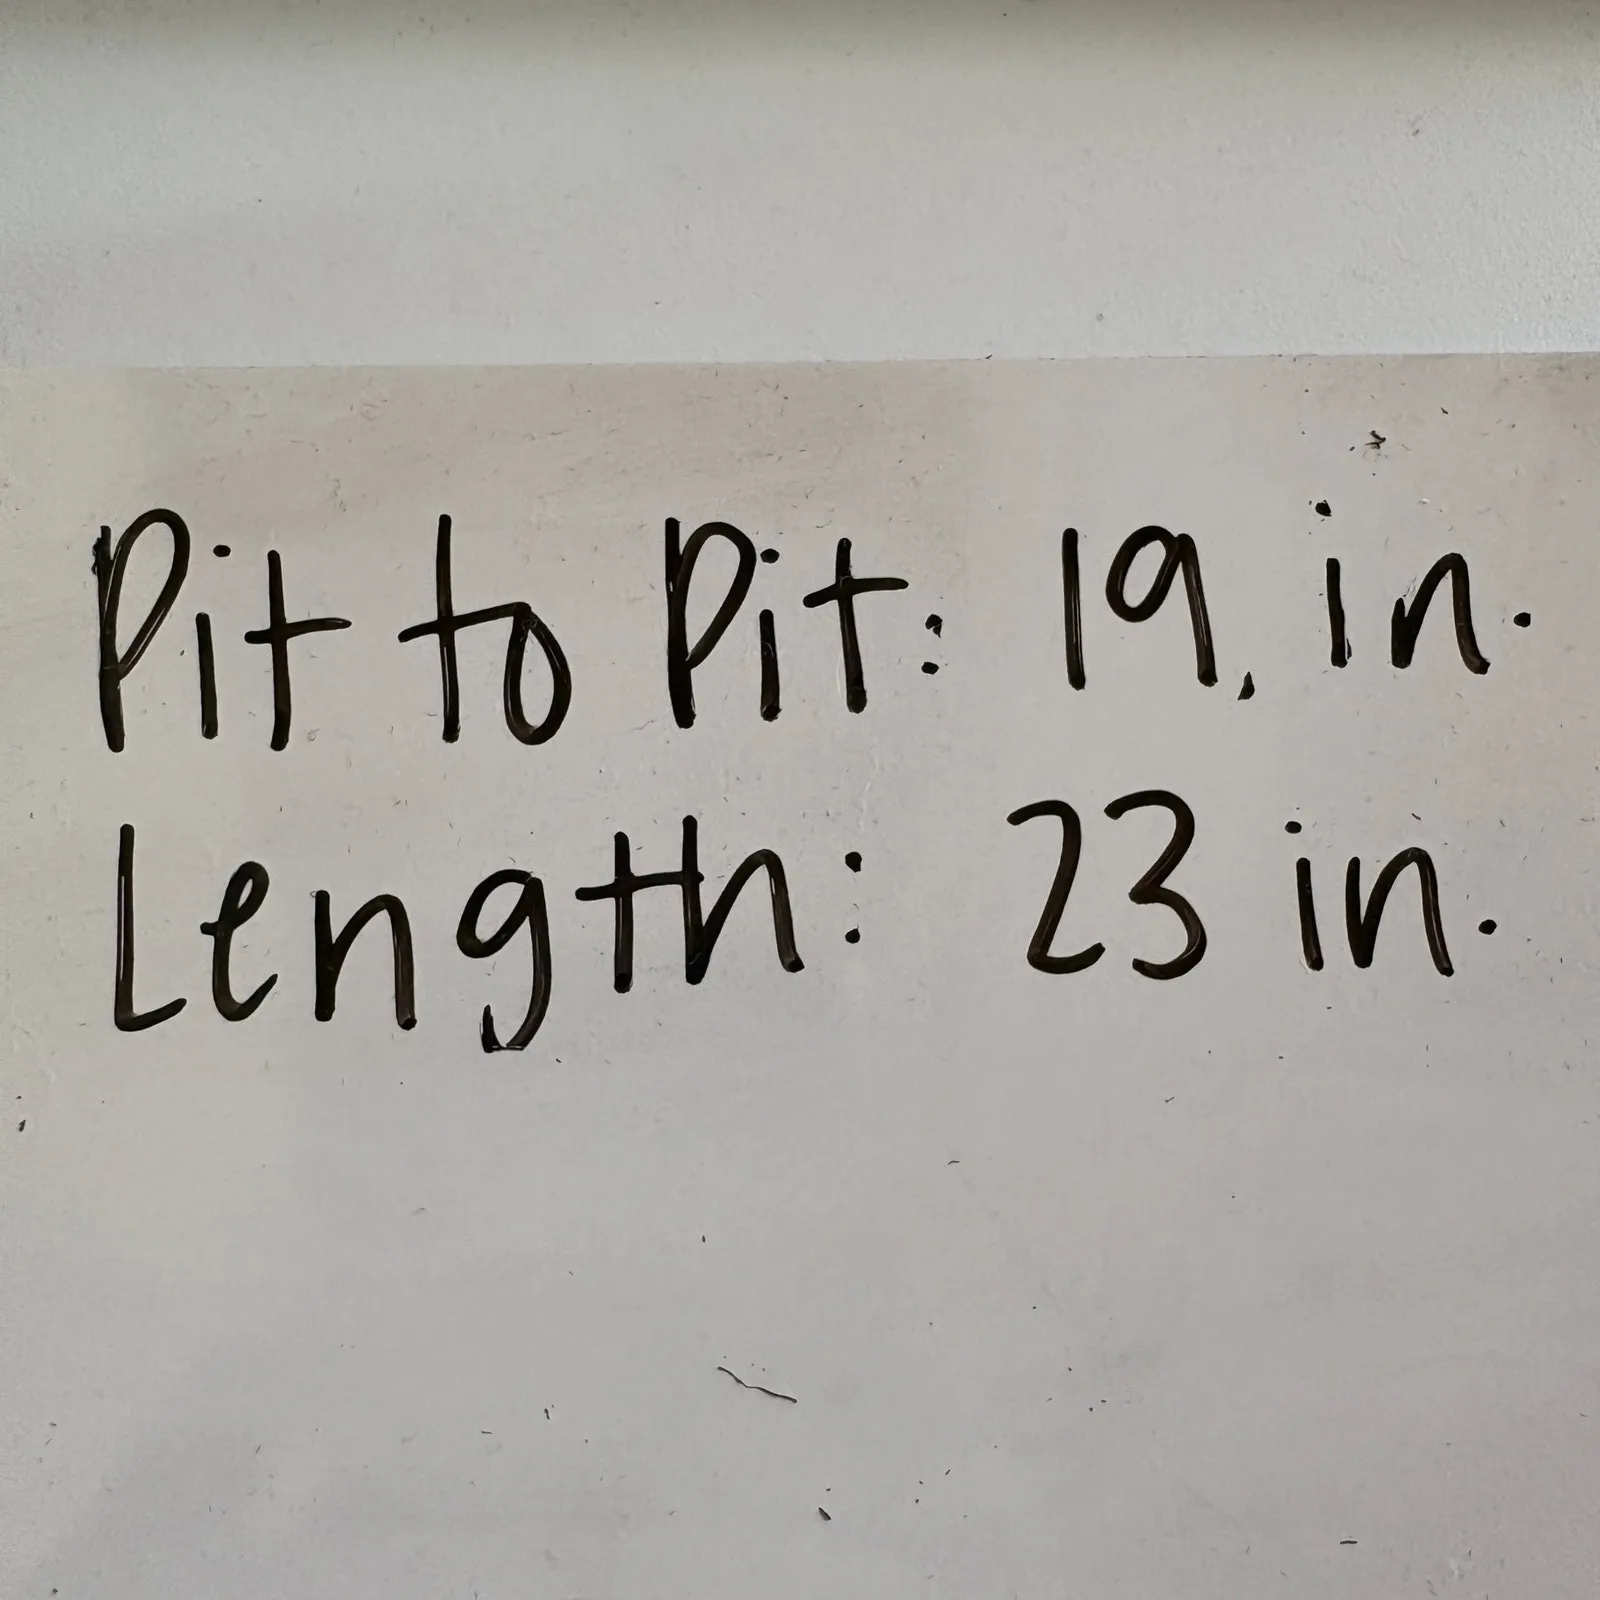 Pit to Pit: 19. in.
Length: 23 in.